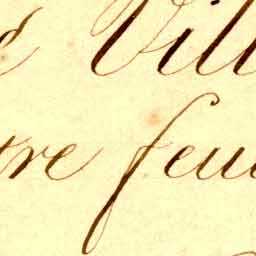 Vill
tre feu